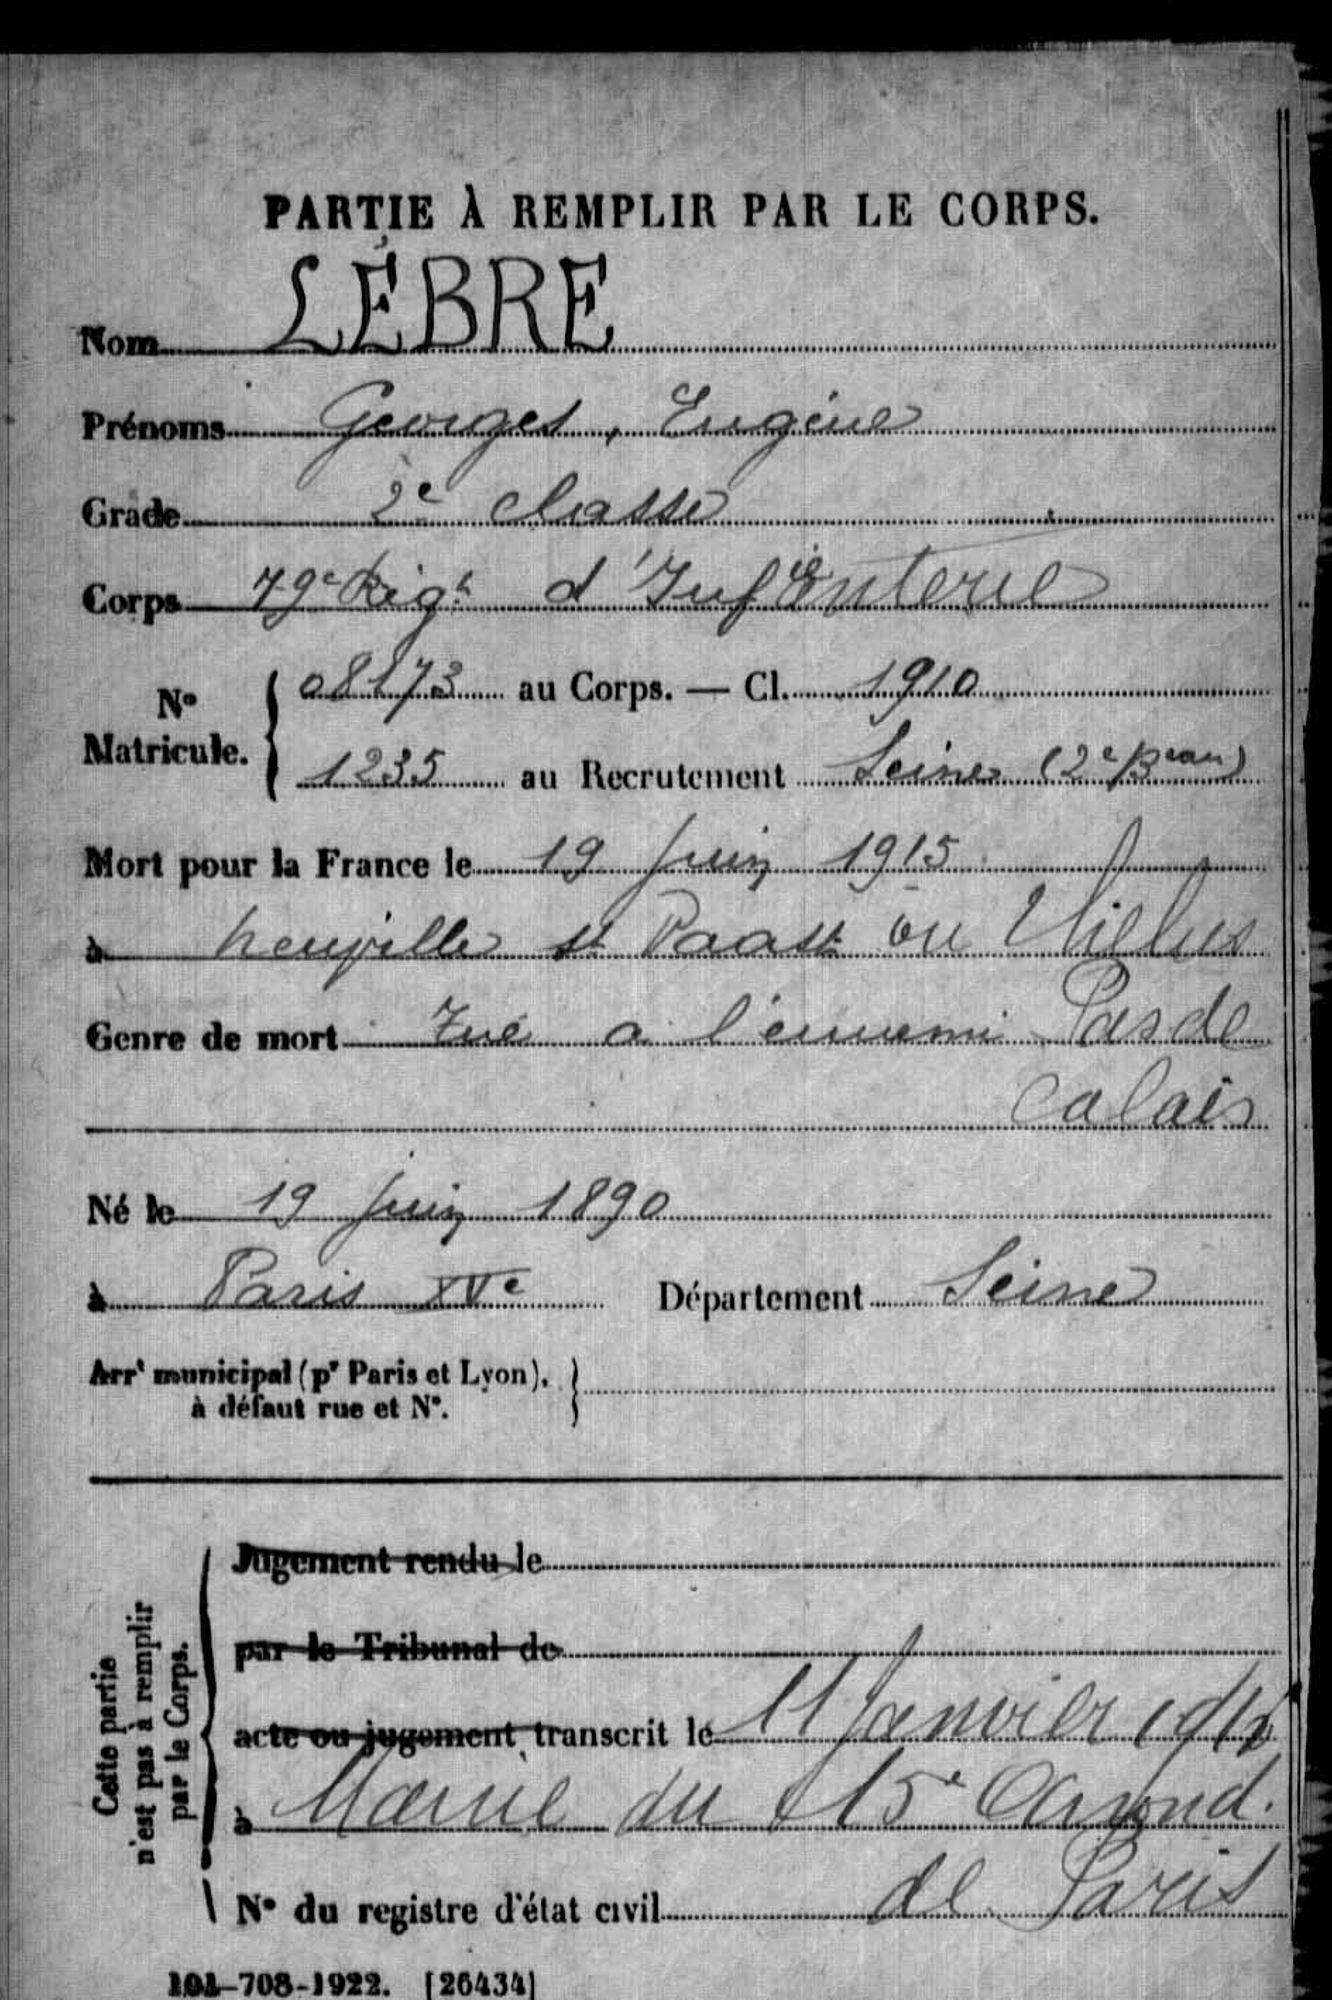 PARTIE À REMPLIR PAR LE CORPS.
Nom LÉBRE
Prénoms Georges, Eugène
Grade 2e classe
Corps 79e Régt d'Infanterie
No Matricule. 08173 au Corps. — Cl. 1910
1235 au Recrutement Seine (2e Beau)
Mort pour la France le 19 Juin 1915
à neuville st Vaast ou
Genre de mort Tué a l'ennemi Pas de
Calais
Né le 19 Juin 1890
à Paris XVe Département Seine
Arrt municipal (pr Paris et Lyon),
à défaut rue et No.
Cette partie
n'est pas à remplir
par le Corps.
Jugement rendu le
par le Tribunal de
acte ou jugement transcrit le 11 Janvier
à Mairie du 15e Arrond.
de Paris
No du registre d'état civil
101-708-1922. [26434]